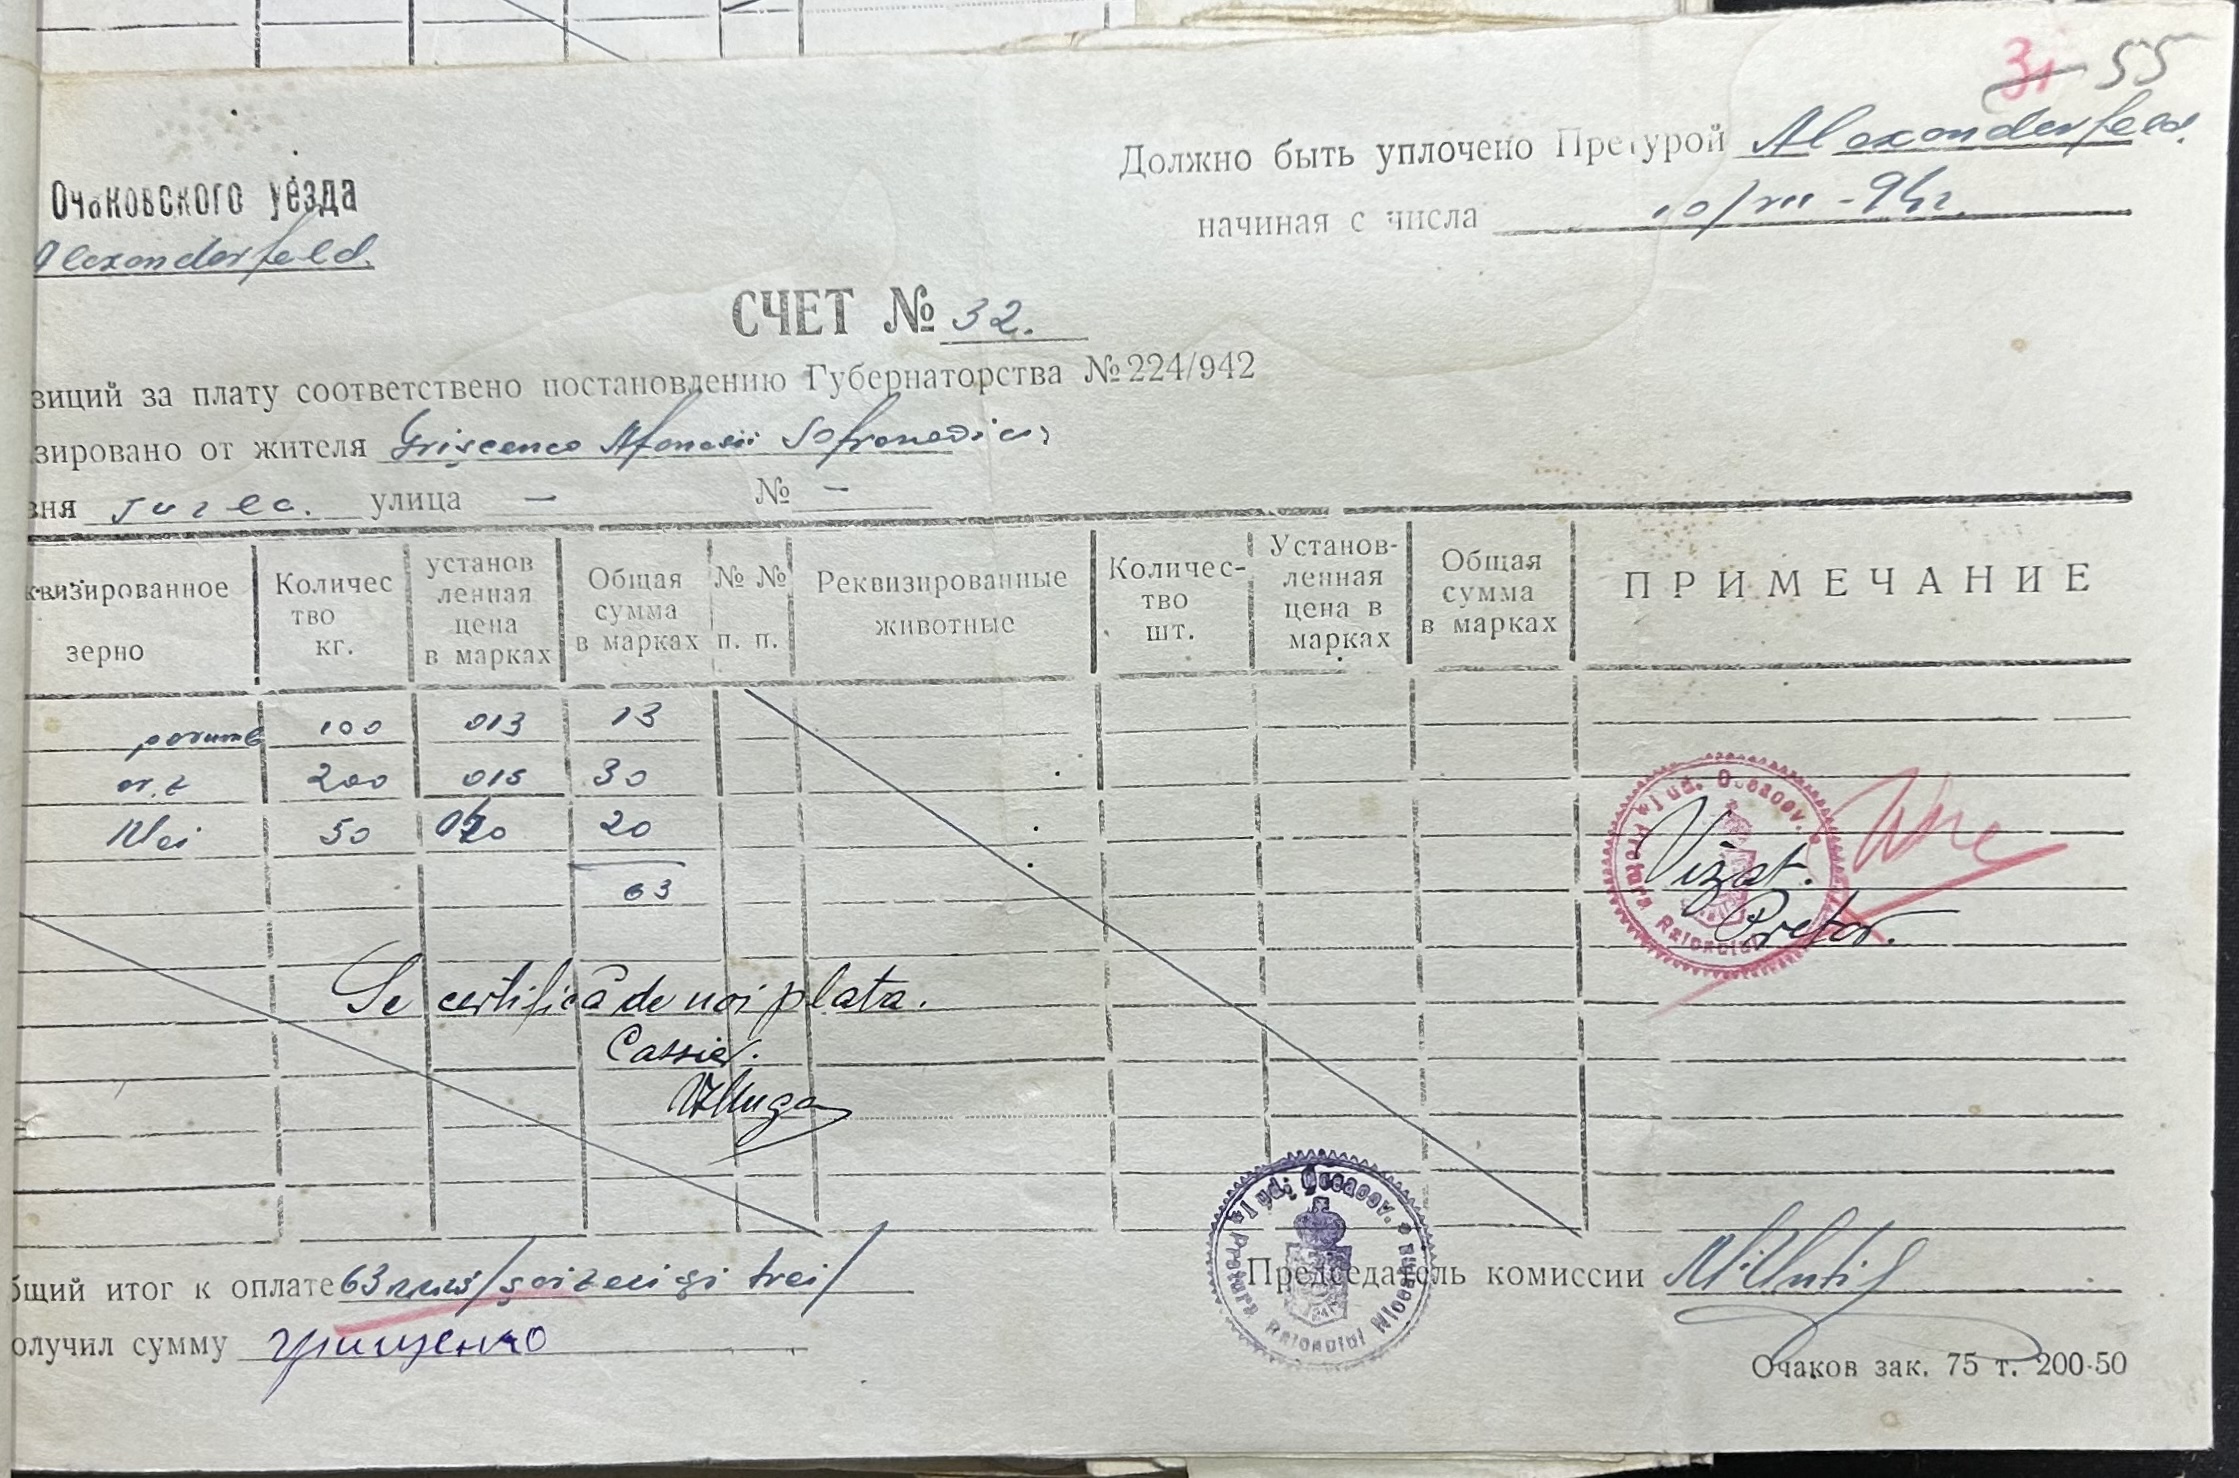 31 55
Должно быть уплочено Претурой Alexanderfeld.
Очаковского уезда
начиная с числа 10/VII - 942.
Alexanderfeld.
СЧЕТ № 32.
зиций за плату соответствено постановлению Губернаторства № 224/942
зировано от жителя Grişcenco Afanasii Sofronovici
вня улица — № —
квизированное зерно Количес тво кг. установ ленная цена в марках Общая сумма в марках № № п. п. Реквизированные животные Количес- тво шт. Установ- ленная цена в марках Общая сумма в марках ПРИМЕЧАНИЕ
porumb 100 013 13
orz 200 015 30
50 20
63
Vizat.
Pretor.
Pretura Raionului Jud. Oceacov.
Se certifică de noi plata.
Cassier.
Pretura Raionului Jud. Oceacov.
бщий итог к оплате 63 /şaizeci şi trei/
Председатель комиссии
олучил сумму Грищенко
Очаков зак. 75 т. 200-50